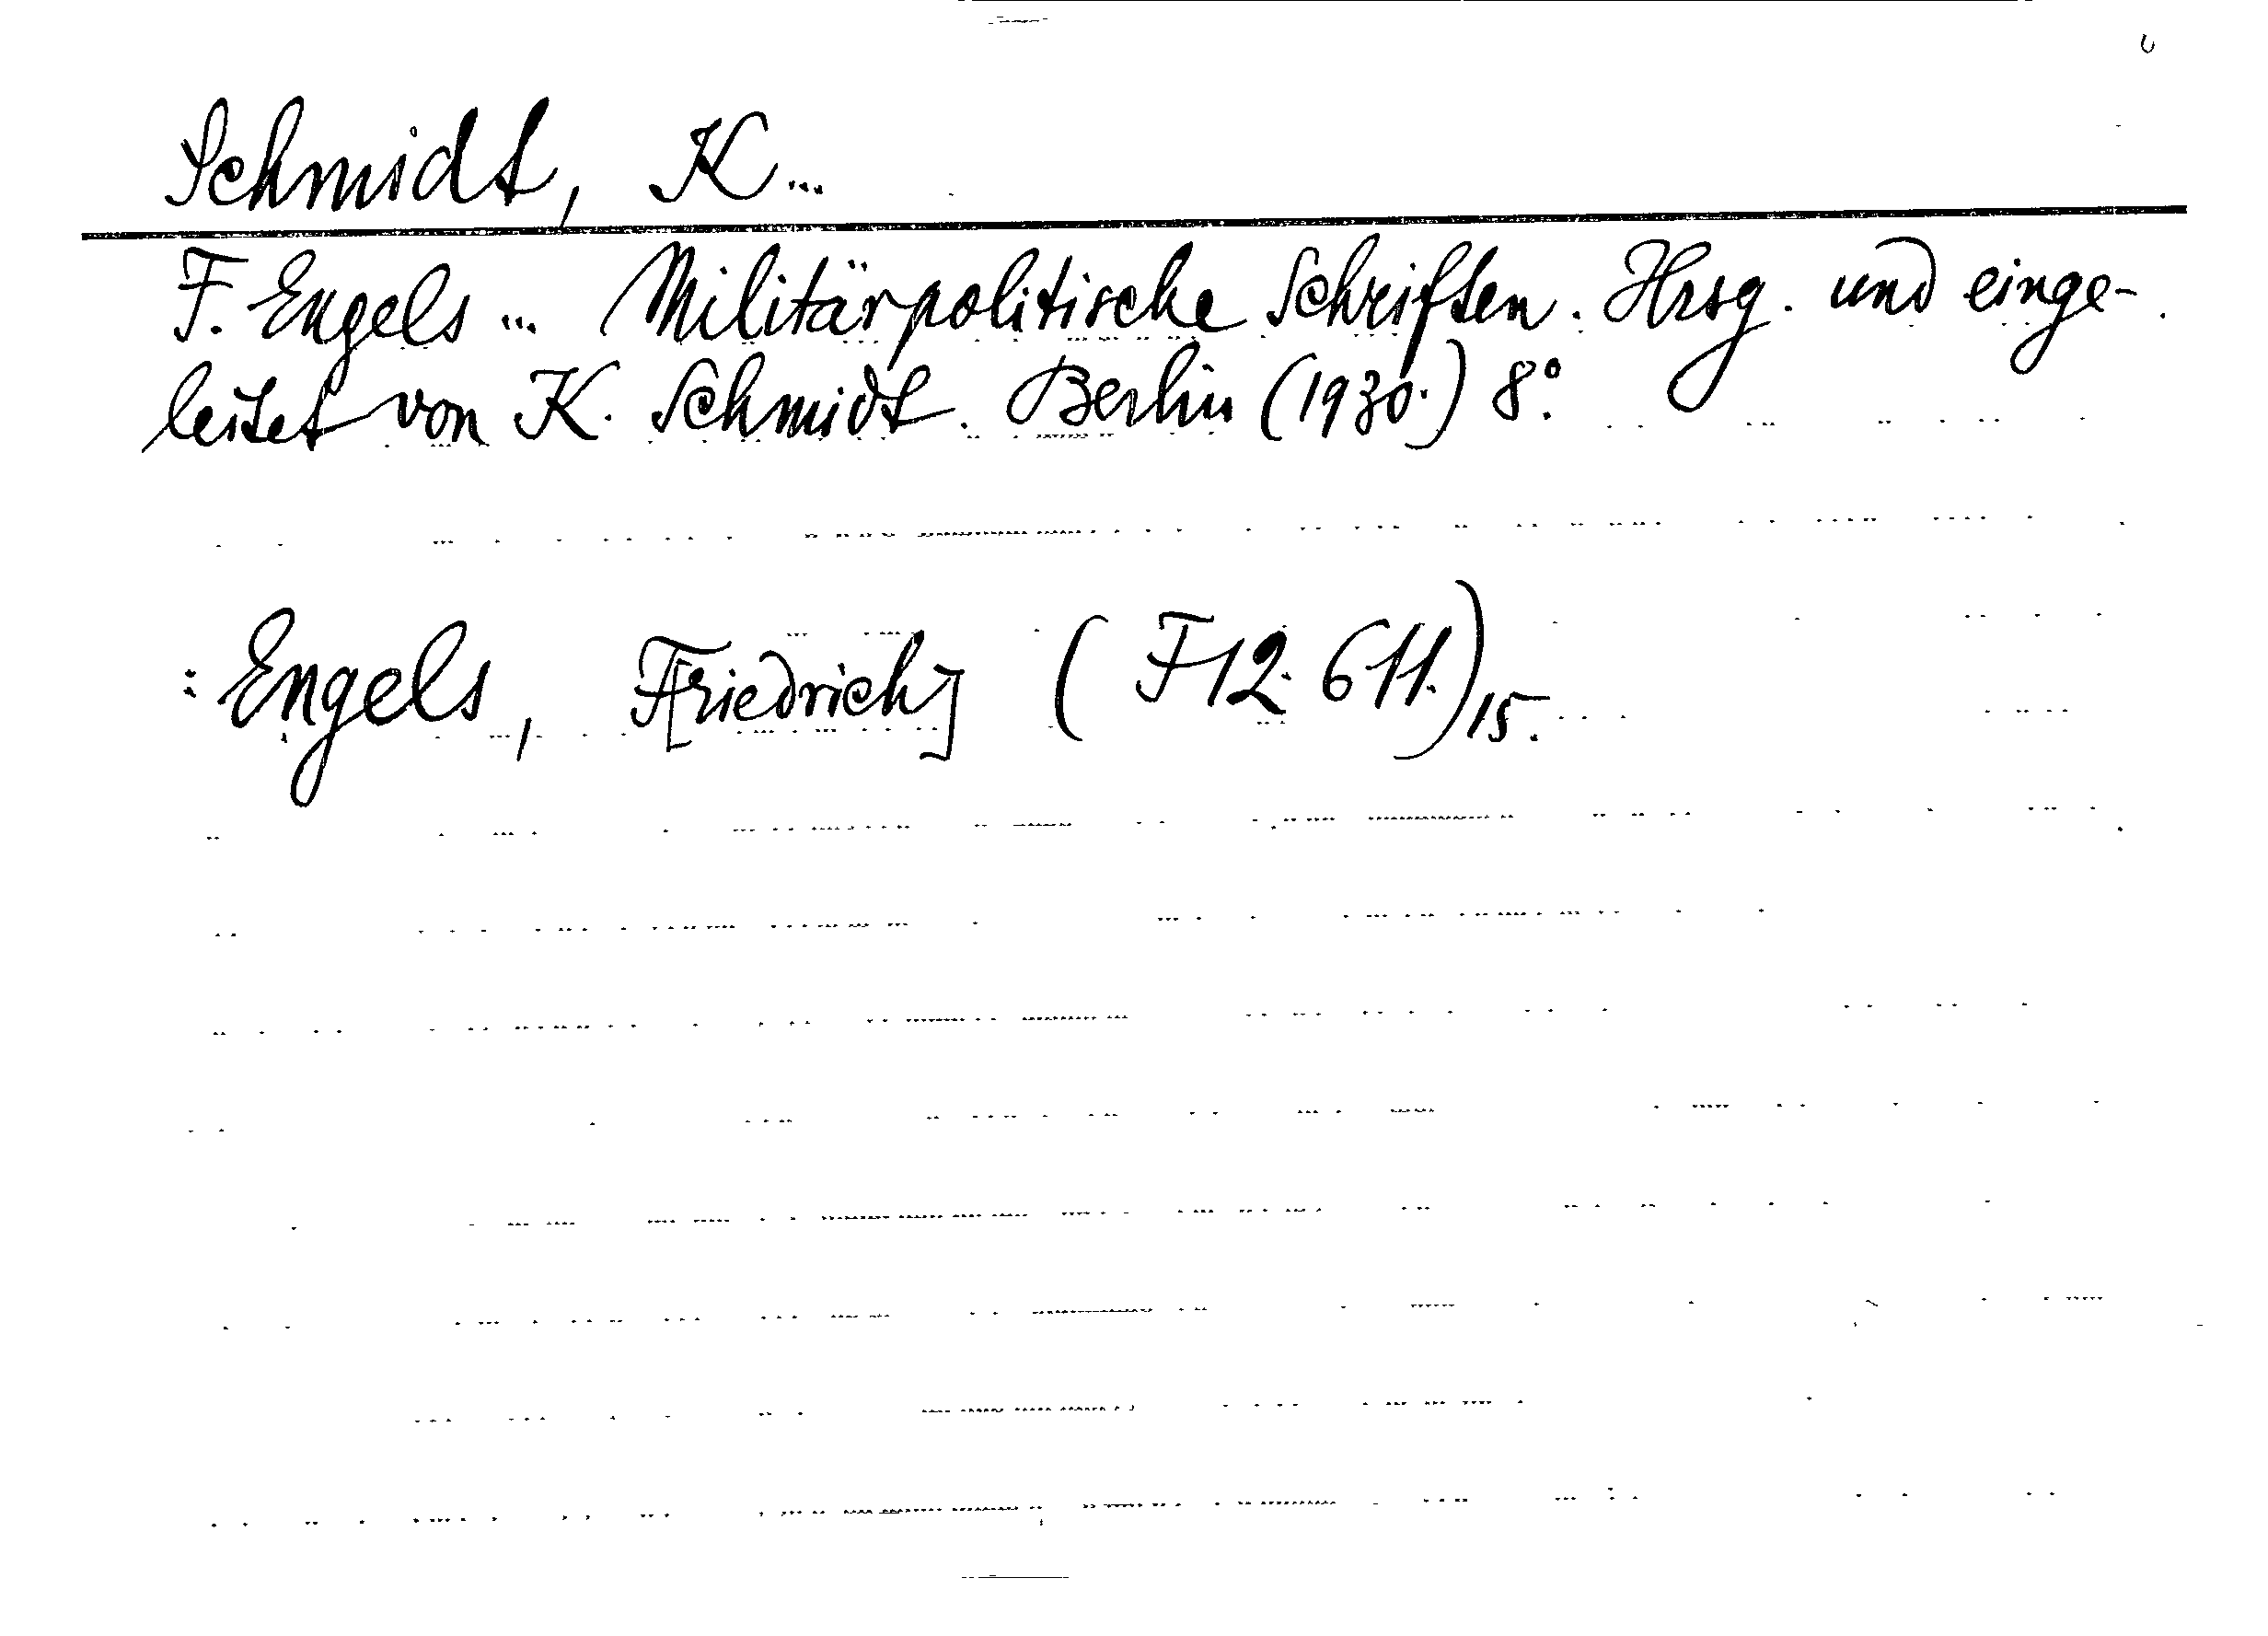 Schmidt, K...
F. Engels ... Militärpolitische Schriften. Hrsg. und einge-
leitet von K. Schmidt. Berlin (1930.) 8°.
: Engels, F[riedrich] (F12. 611.)15.